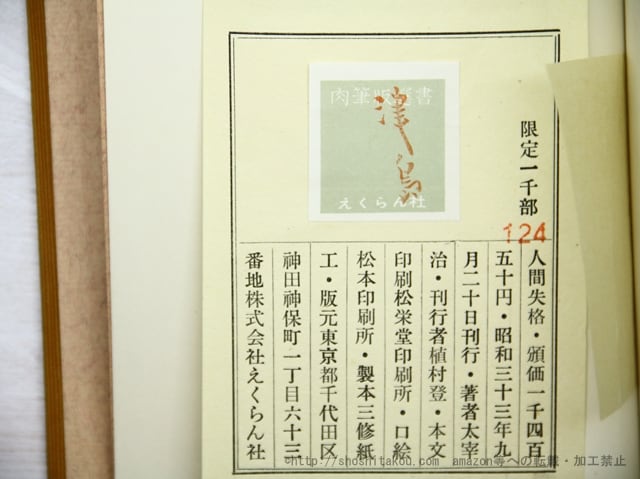 限定一千部
124
肉筆版画書
津島
えくらん社
人間失格・頒価一千四百
五十円・昭和三十三年九
月二十日刊行・著者太宰
治・刊行者植村登・本文
印刷松栄堂印刷所・口絵
松本印刷所・製本三修紙
工・版元東京都千代田区
神田神保町一丁目六十三
番地株式会社えくらん社
©http://shoshitakou.com amazon等への転載・加工禁止